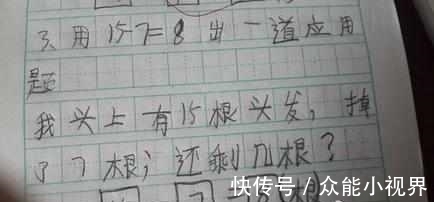 3、用157=8出一道应用
题
我头上有15根头发,掉
了7根,还剩几根?
快传号/众能小视界